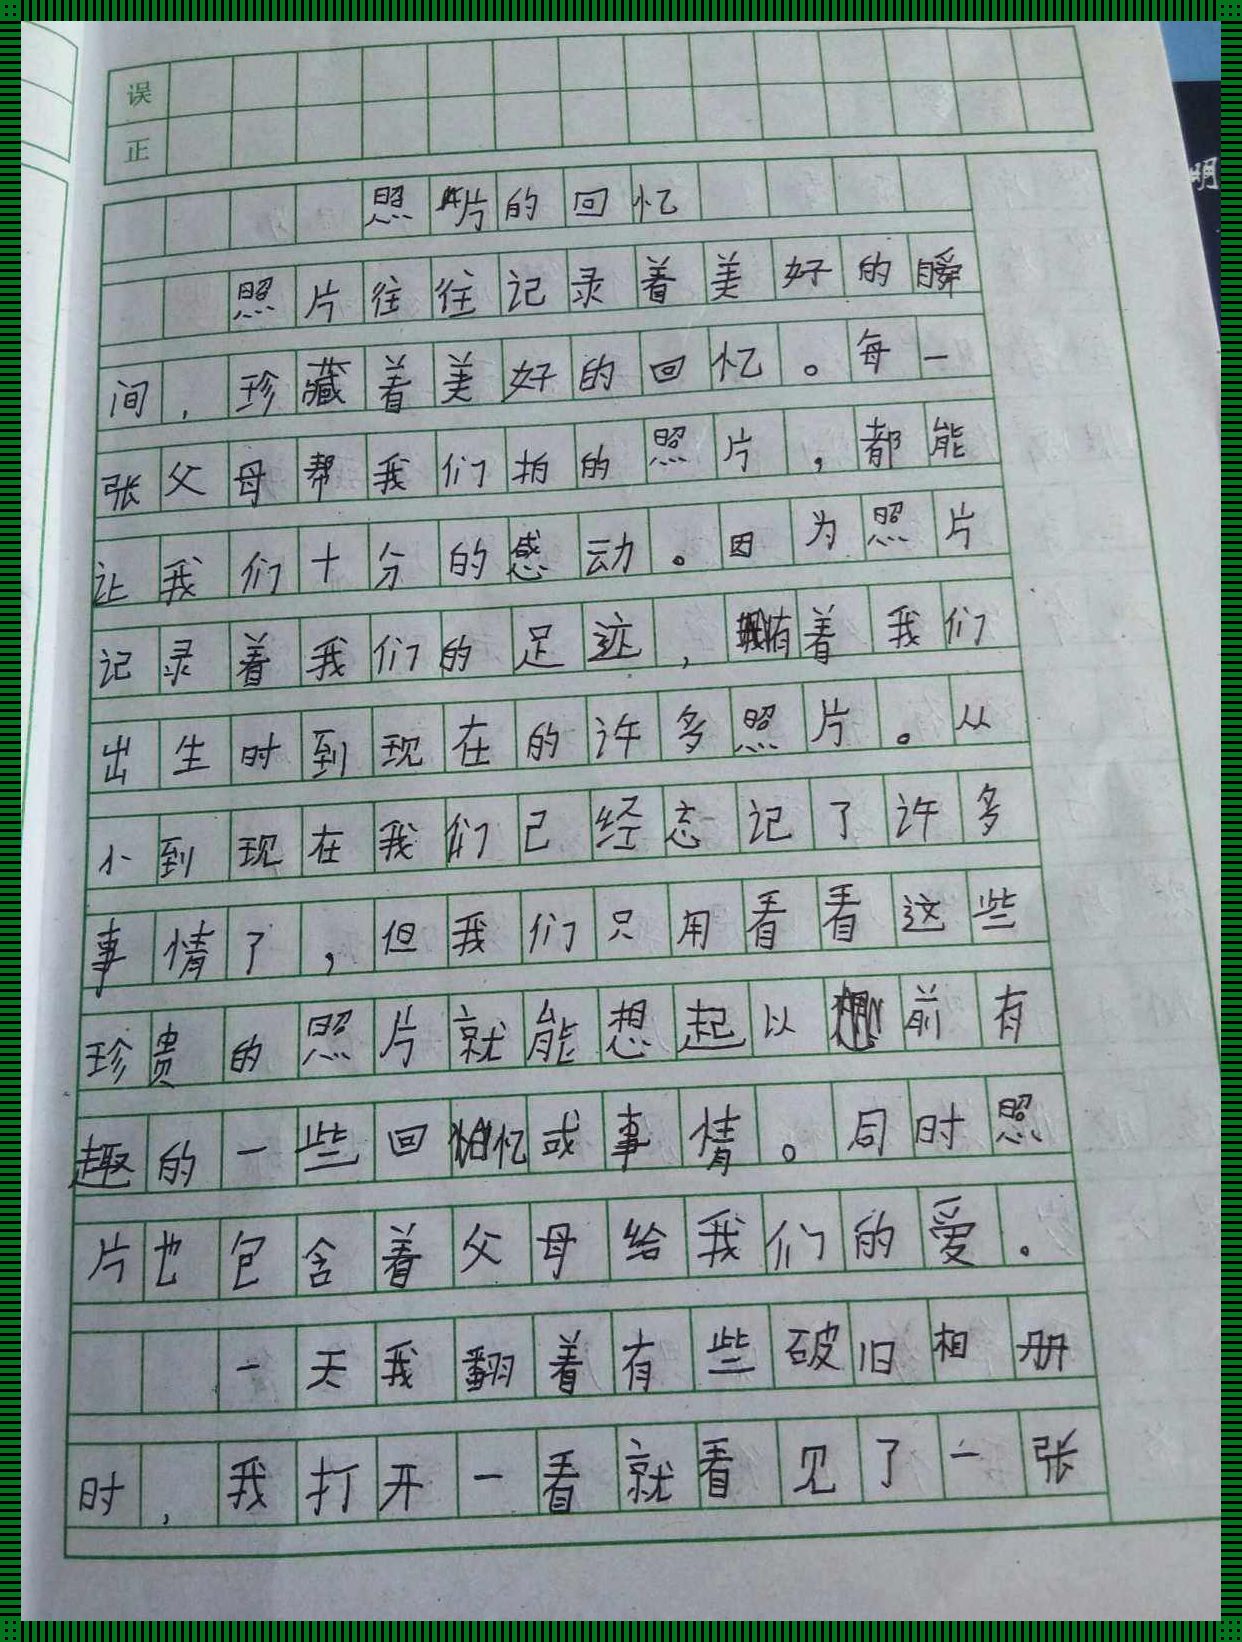 误
正
照片的回忆
照片往往记录着美好的瞬
间，珍藏着美好的回忆。每一
张父母帮我们拍的照片，都能
让我们十分的感动。因为照片
记录着我们的足迹，拥有着我们
出生时到现在的许多照片。从
小到现在我们已经忘记了许多
事情了，但我们只用看看这些
珍贵的照片就能想起以前有
趣的一些回忆或事情。同时照
片也包含着父母给我们的爱.
一天我翻着有些破旧相册
时，我打开一看就看见了一张
明